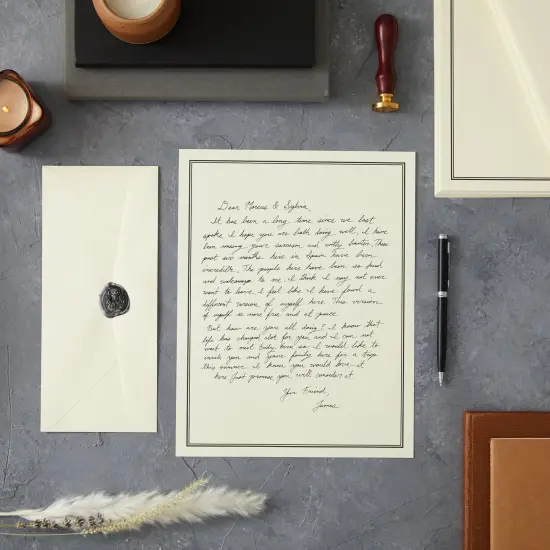 Dear Marcus & Sylvia,
It has been a long time since we last
spoke. I hope you are both doing well. I have
been missing your sarcasm and witty banter. These
past six months here in Spain have been
incredible. The people here have been so kind
and welcoming to me. I think I may not ever
want to leave. I feel like I have found a
different version of myself here. This version
of myself is more free and at peace.
But how are you all doing? I know that
life has changed alot for you and I can not
wait to meet baby. Even so I would like to
invite you and your family here for a trip
this summer. I know you would love it
here. Just promise you will consider it.
Your Friend,
James